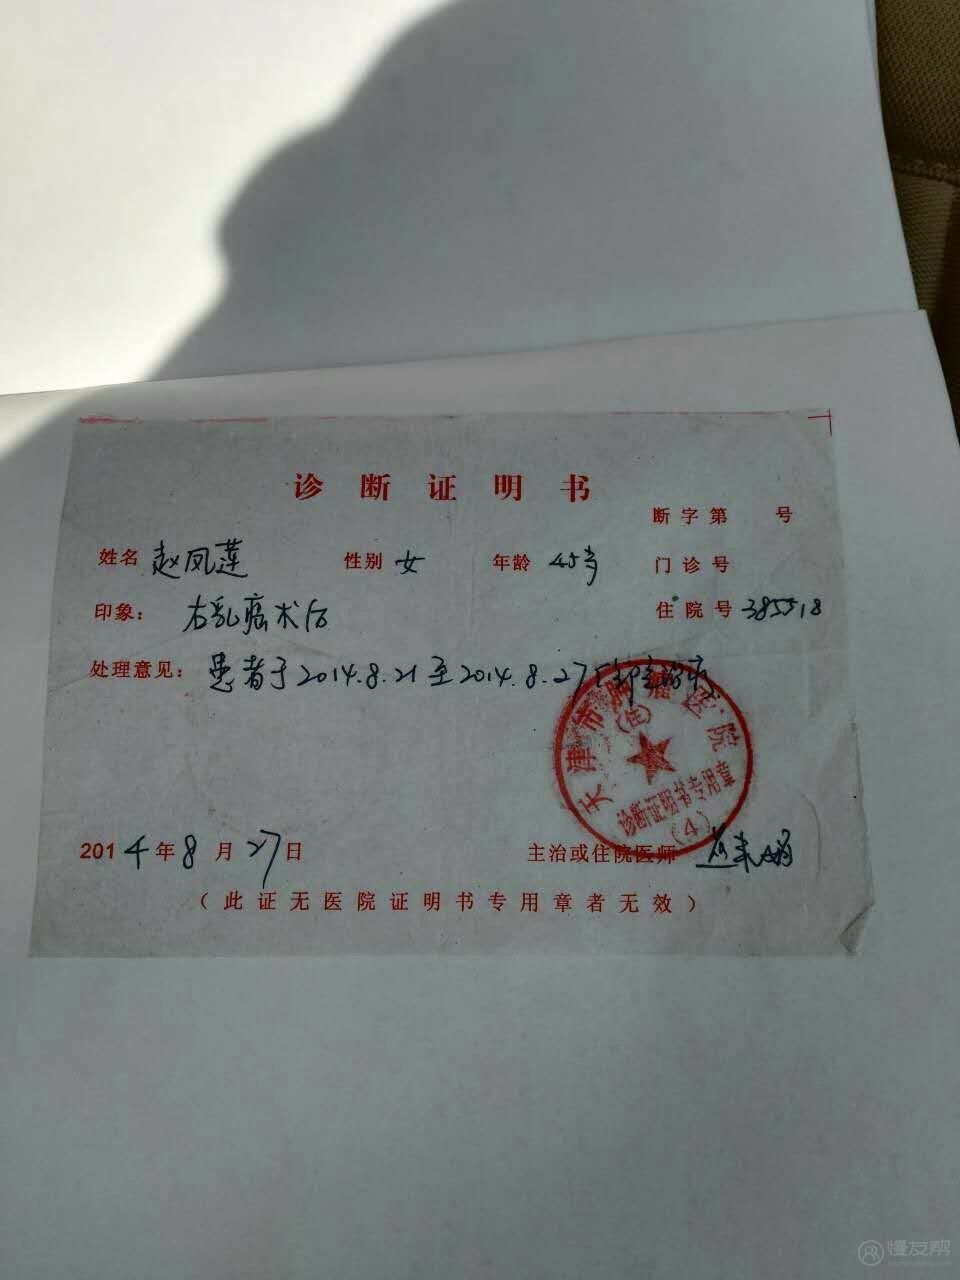 诊断证明书
断字第 号
姓名 赵凤莲 性别 女 年龄 45岁 门诊号
印象： 右乳癌术后 住院号 385518
处理意见： 患者于2014.8.21至2014.8.27
天津市肿瘤医院
(住)
诊断证明书专用章
(4)
2014年8月27日 主治或住院医师
(此证无医院证明书专用章者无效)
慢友帮